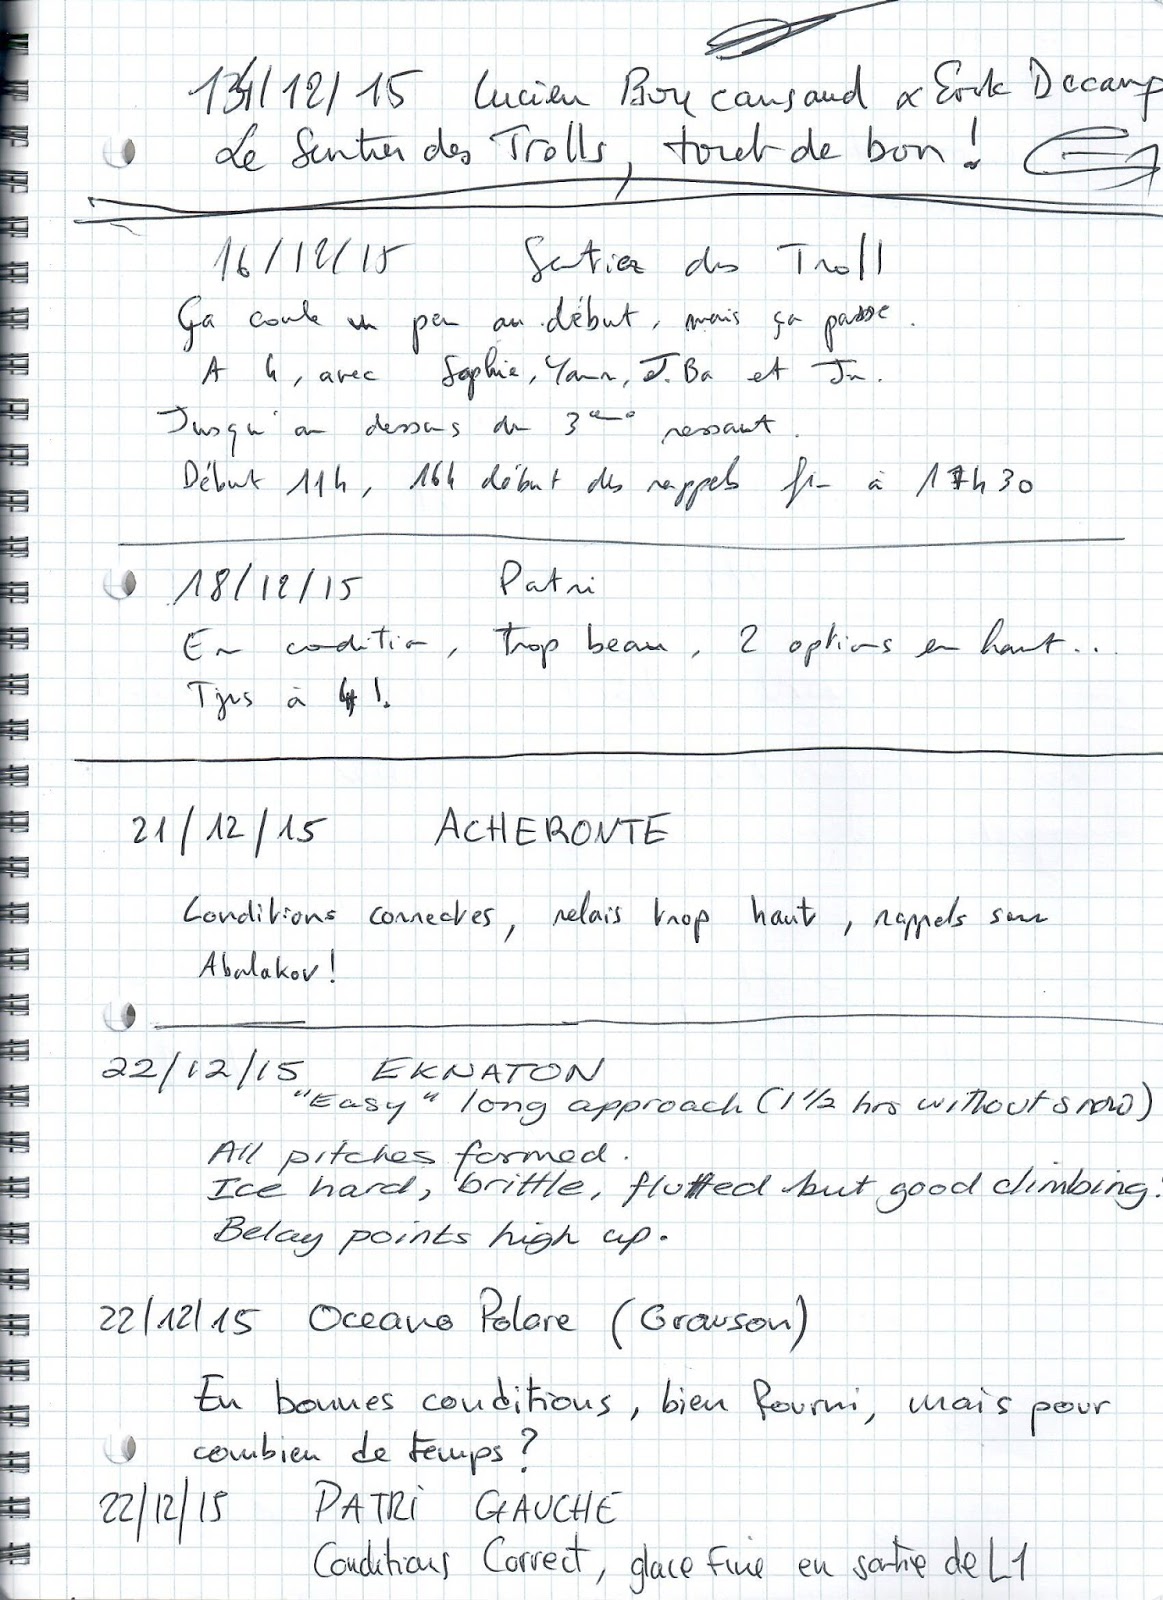 13/12/15 Lucien Boy cansaud & Erik Decamp
Le Sentier des Trolls, tout de bon !
16/12/15 Sentier des Troll
Ça coule un peu au début, mais ça passe.
A 4, avec Sophie, Yann, J.Ba et Ju.
Jusqu'au dessus du 3ème ressaut.
Début 11h, 16h début des rappels fin à 17h30
18/12/15 Patri
En condition, trop beau, 2 options en haut...
Tjrs à 4 !.
21/12/15 ACHERONTE
Conditions correctes, relais trop haut, rappels sur
Abalakov !
22/12/15 EKNATON
"Easy" long approach (1 1/2 hrs without snow)
All pitches formed.
Ice hard, brittle, flutted but good climbing.
Belay points high up.
22/12/15 Oceano Polare (Grauson)
En bonnes conditions, bien fourni, mais pour
combien de temps ?
22/12/15 PATRI GAUCHE
Conditions Correct, glace fine en sortie de L1